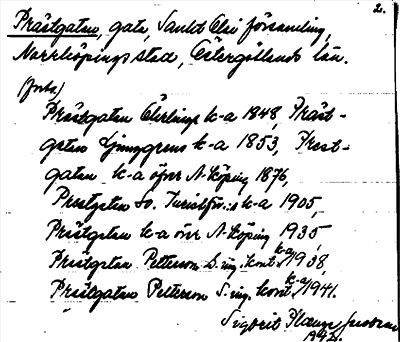 2.
Prästgatan, gata, Sankt Olai församling,
Norrköpings stad, Östergötlands län.
(forts)
Prästgatan Ekrlings k-a 1848, Präst-
gatan Ljunggrens k-a 1853, Prest-
gatan k-a öfver N-köping 1876,
Prestgatan Sv. Turistför:s k-a 1905,
Prästgatan k-a över N-köping 1935,
Prästgatan Petterson S. ing. kont. k-a 1938,
Prästgatan Petterson S. ing. kont. k-a 1941.
Sigbrit
1942.